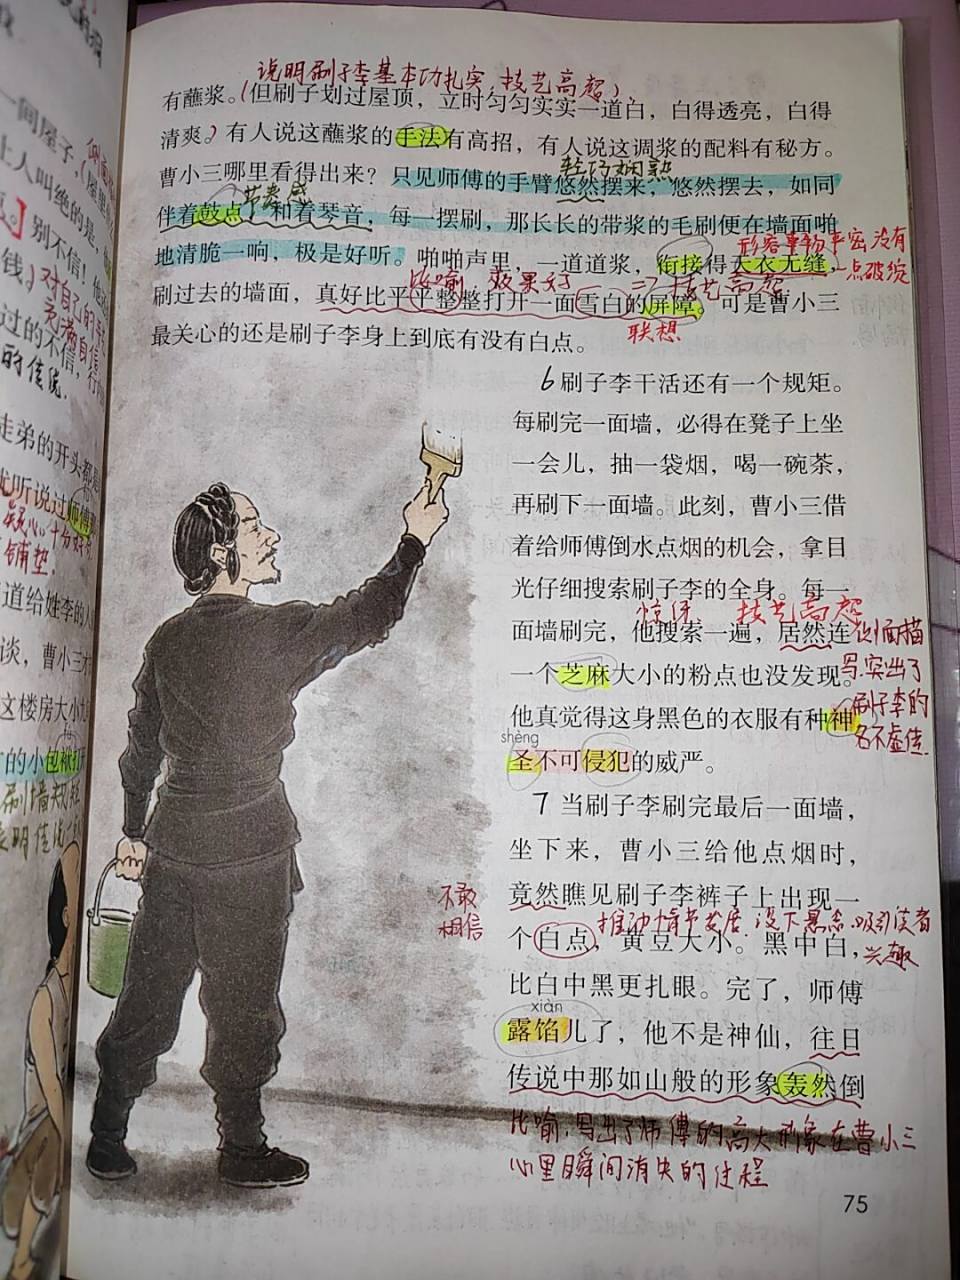 说明刷子李基本功扎实,技艺高超)
有蘸浆。(但刷子划过屋顶，立时匀匀实实一道白，白得透亮，白得
清爽。)有人说这蘸浆的手法有高招，有人说这调浆的配料有秘方。
轻巧娴熟
曹小三哪里看得出来？只见师傅的手臂悠然摆来，悠然摆去，如同
节奏感
伴着鼓点，和着琴音，每一摆刷，那长长的带浆的毛刷便在墙面啪
形容事物严密,没有
地清脆一响，极是好听。啪啪声里，一道道浆，衔接得天衣无缝，
一点破绽
比喻 效果好 => 技艺高超
刷过去的墙面，真好比平平整整打开一面雪白的屏障。可是曹小三
联想
最关心的还是刷子李身上到底有没有白点。
6 刷子李干活还有一个规矩。
每刷完一面墙，必得在凳子上坐
一会儿，抽一袋烟，喝一碗茶，
再刷下一面墙。此刻，曹小三借
着给师傅倒水点烟的机会，拿目
光仔细搜索刷子李的全身。每一
惊讶 技艺高超
面墙刷完，他搜索一遍，居然连
侧面描
一个芝麻大小的粉点也没发现。
写.突出了
他真觉得这身黑色的衣服有种神
刷子李的
名不虚传.
shèng
圣不可侵犯的威严。
7 当刷子李刷完最后一面墙，
坐下来，曹小三给他点烟时，
竟然瞧见刷子李裤子上出现一
不敢
相信
推动情节发展.设下悬念.吸引读者
个白点，黄豆大小。黑中白，
兴趣
比白中黑更扎眼。完了，师傅
xiàn
露馅儿了，他不是神仙，往日
传说中那如山般的形象轰然倒
比喻.写出了师傅的高大形象在曹小三
心里瞬间消失的过程
75
一间屋子
上人叫绝的是
别不信！他
钱。)
对自己的
充满自信
过的不信，
徒弟的开头都是
听说过师傅
疑心 十分好奇
铺垫.
道给姓李的人
谈，曹小三才
这楼房大小九
的小包袱打